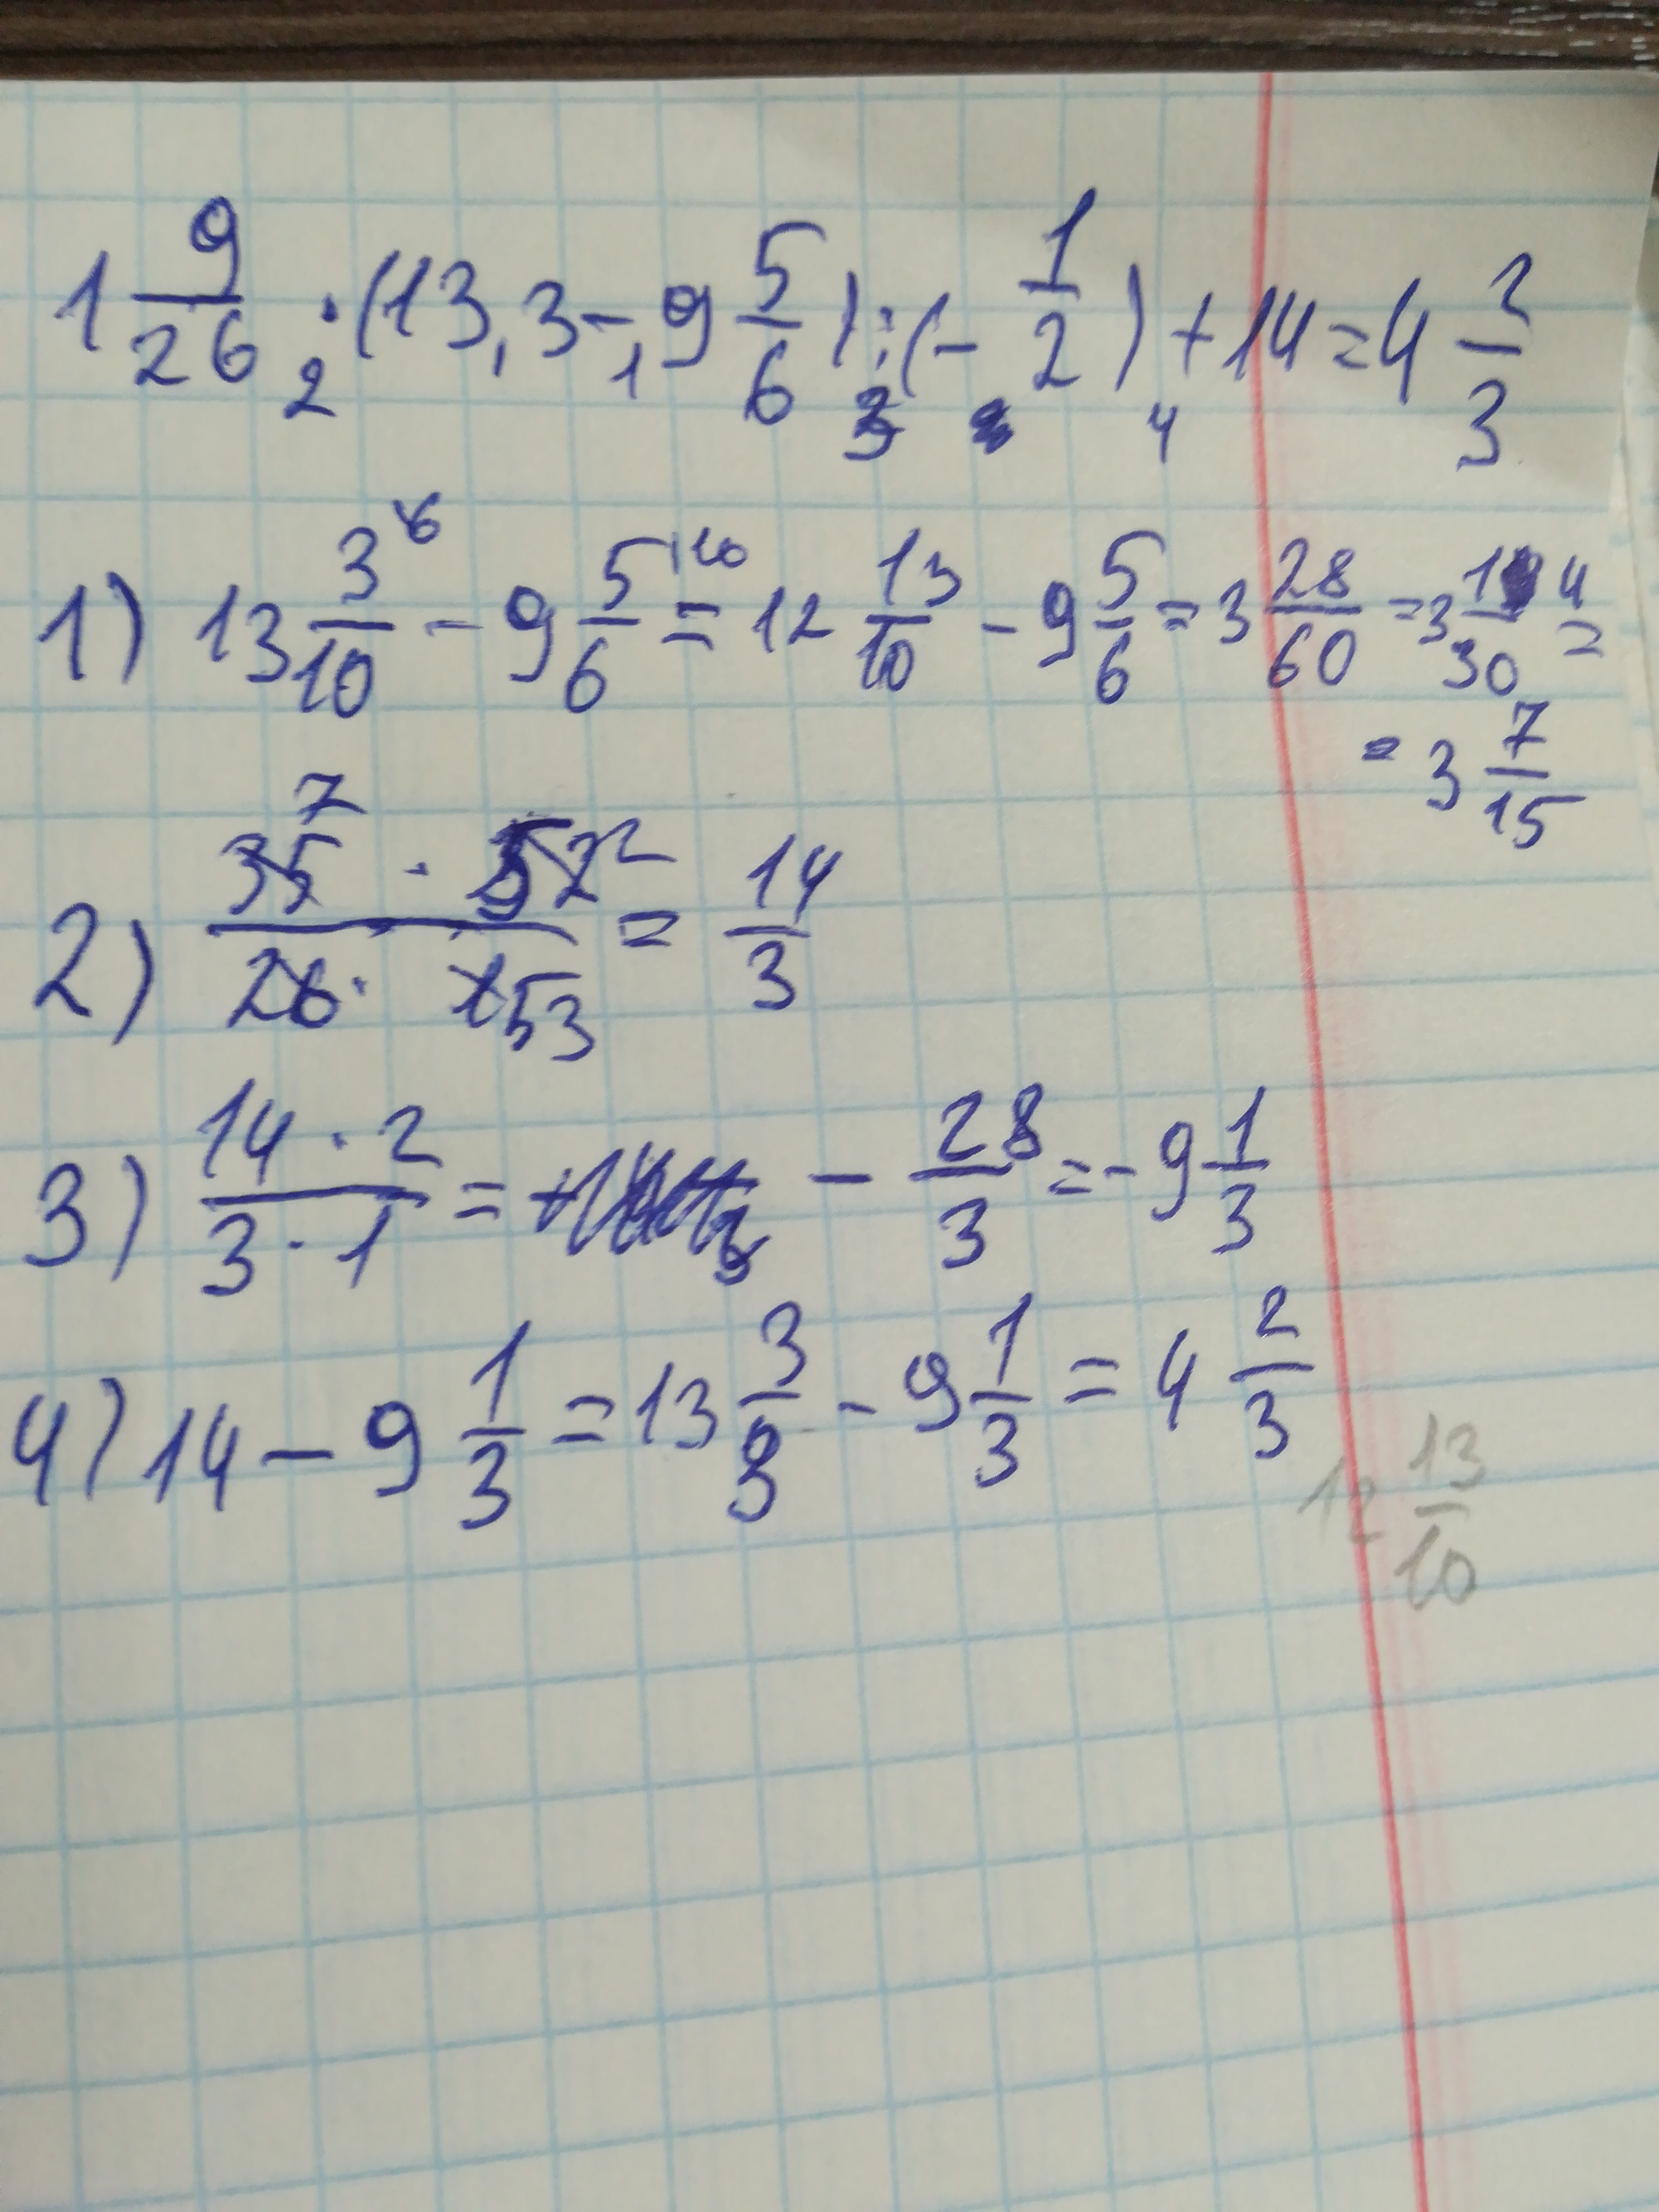 1 9/26 · (13,3 - 9 5/6) : (- 1/2) + 14 = 4 2/3
2 1 3 4
1) 13 3/10 - 9 5/6 = 12 13/10 - 9 5/6 = 3 28/60 = 3 14/30 =
= 3 7/15
2) 35 · 52 / 26 · 15 = 14/3
3) 14 · 2 / 3 · 1 = - 28/3 = - 9 1/3
4) 14 - 9 1/3 = 13 3/3 - 9 1/3 = 4 2/3
12 13/10